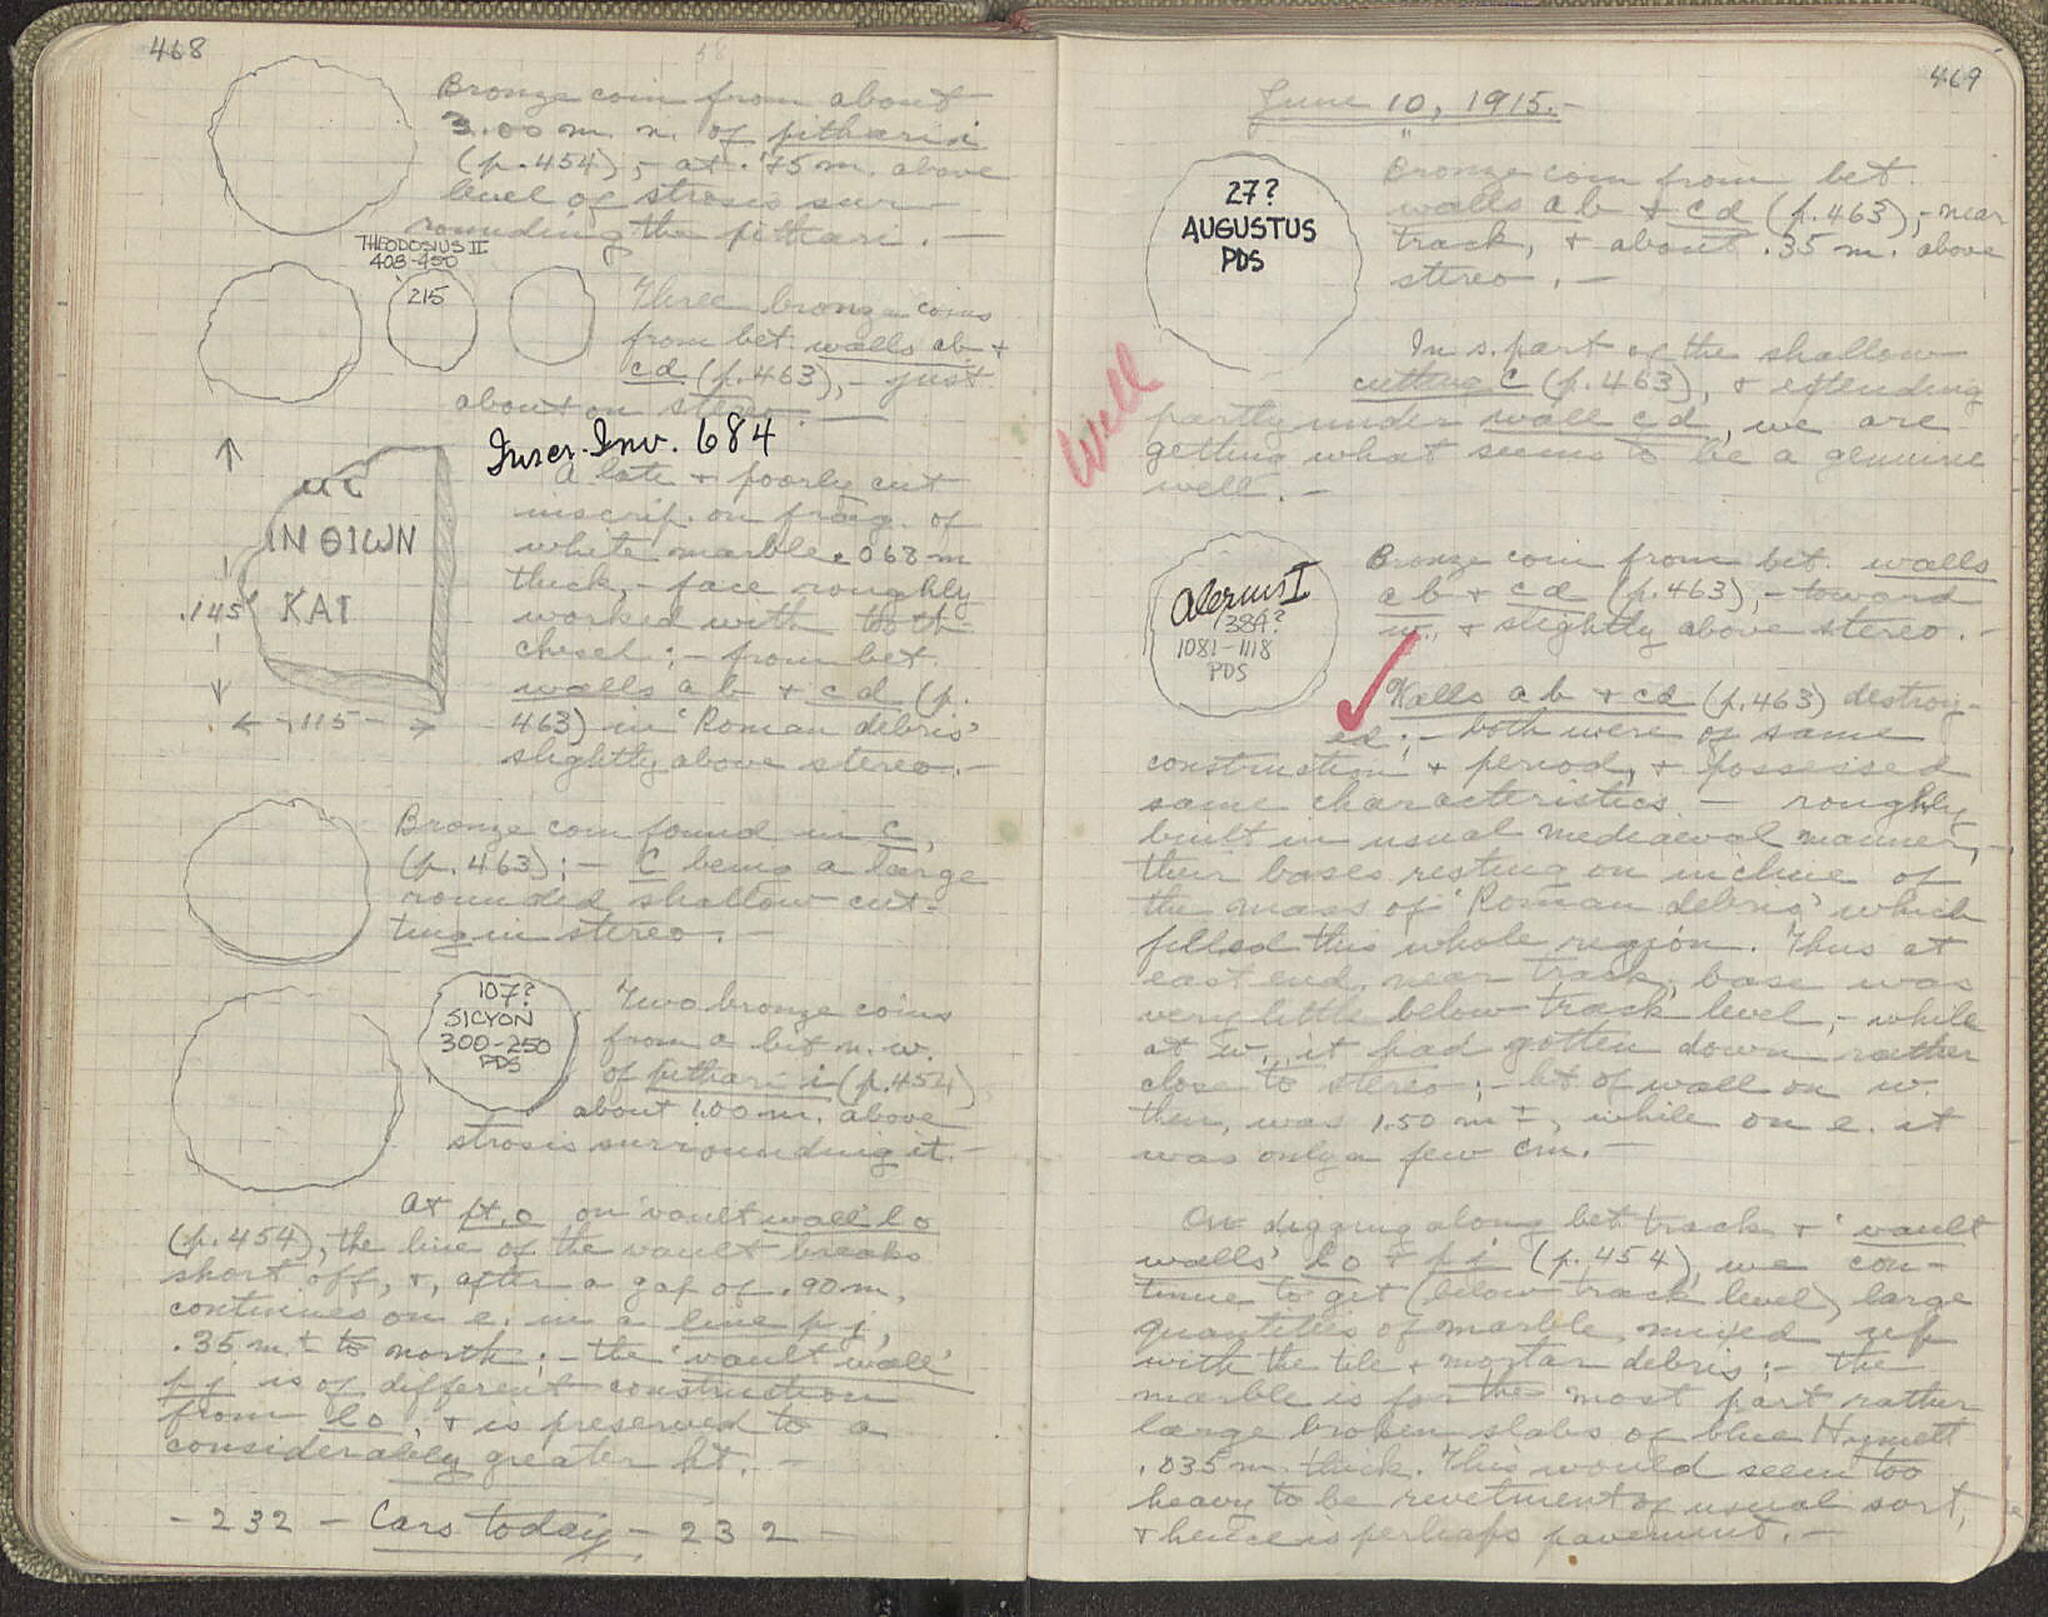 468
Bronze coin from about
3.00 m. n. of pithari i
(p. 454), - at .75 m. above
level of strosis sur-
rounding the pithari. —
THEODOSIUS II
408-450
215
Three bronze coins
from bet. walls ab +
cd (p. 463), - just
about on stereo. —
Inscr. Inv. 684
A late + poorly cut
inscrip. on frag. of
white marble .068 m
thick, - face roughly
worked with tooth-
chisel; - from bet.
walls ab + cd (p.
463) in 'Roman debris'
slightly above stereo. —
ΙΝ ΘΙωΝ
ΚΑΙ
.145
← .115 →
Bronze coin found in C,
(p. 463); - C being a large
rounded shallow cut-
ting in stereo. —
107?
SICYON
300-250
PDS
Two bronze coins
from a bit n.w.
of pithari i (p. 454)
about 1.00 m. above
strosis surrounding it. —
At pt. o on 'vault wall' lo
(p. 454), the line of the vault breaks
short off, +, after a gap of .90 m,
continues on e. in a line pj,
.35 m ± to north; - the 'vault wall'
pj is of different construction
from lo, + is preserved to a
considerably greater ht. —
- 232 - Cars today - 232 -
469
June 10, 1915. -
27?
AUGUSTUS
PDS
Bronze coin from bet.
walls ab + cd (p. 463), - near
track, + about .35 m. above
stereo. —
Well
In s. part of the shallow
cutting C (p. 463), + extending
partly under wall cd, we are
getting what seems to be a genuine
well. —
Alexius I
384?
1081-1118
PDS
Bronze coin from bet. walls
ab + cd (p. 463), - toward
w., + slightly above stereo. -
Walls ab + cd (p. 463) destroy-
ed; - both were of same
construction + period, + possessed
same characteristics — roughly
built in usual mediaeval manner, -
their bases resting on incline of
the mass of 'Roman debris' which
filled this whole region. Thus at
east end, near track, base was
very little below track level, - while
at w., it had gotten down rather
close to stereo; - ht of wall on w.
then, was 1.50 m ±, while on e. it
was only a few cm. —
On digging along bet track + 'vault
walls' lo + pj (p. 454), we con-
tinue to get (below track level) large
quantities of marble mixed up
with the tile + mortar debris; - the
marble is for the most part rather
large broken slabs of blue Hymett
.035 m thick. This would seem too
heavy to be revetment of usual sort,
+ hence is perhaps pavement. —